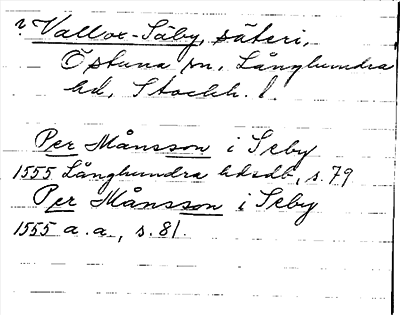 ? Vallox-Säby, säteri,
Östuna sn, Långhundra
hd, Stockh. l.
Per Månsson i Seby
1555 Långhundra hdsdb, s. 79
Per Månsson i Seby
1555 a.a., s. 81.